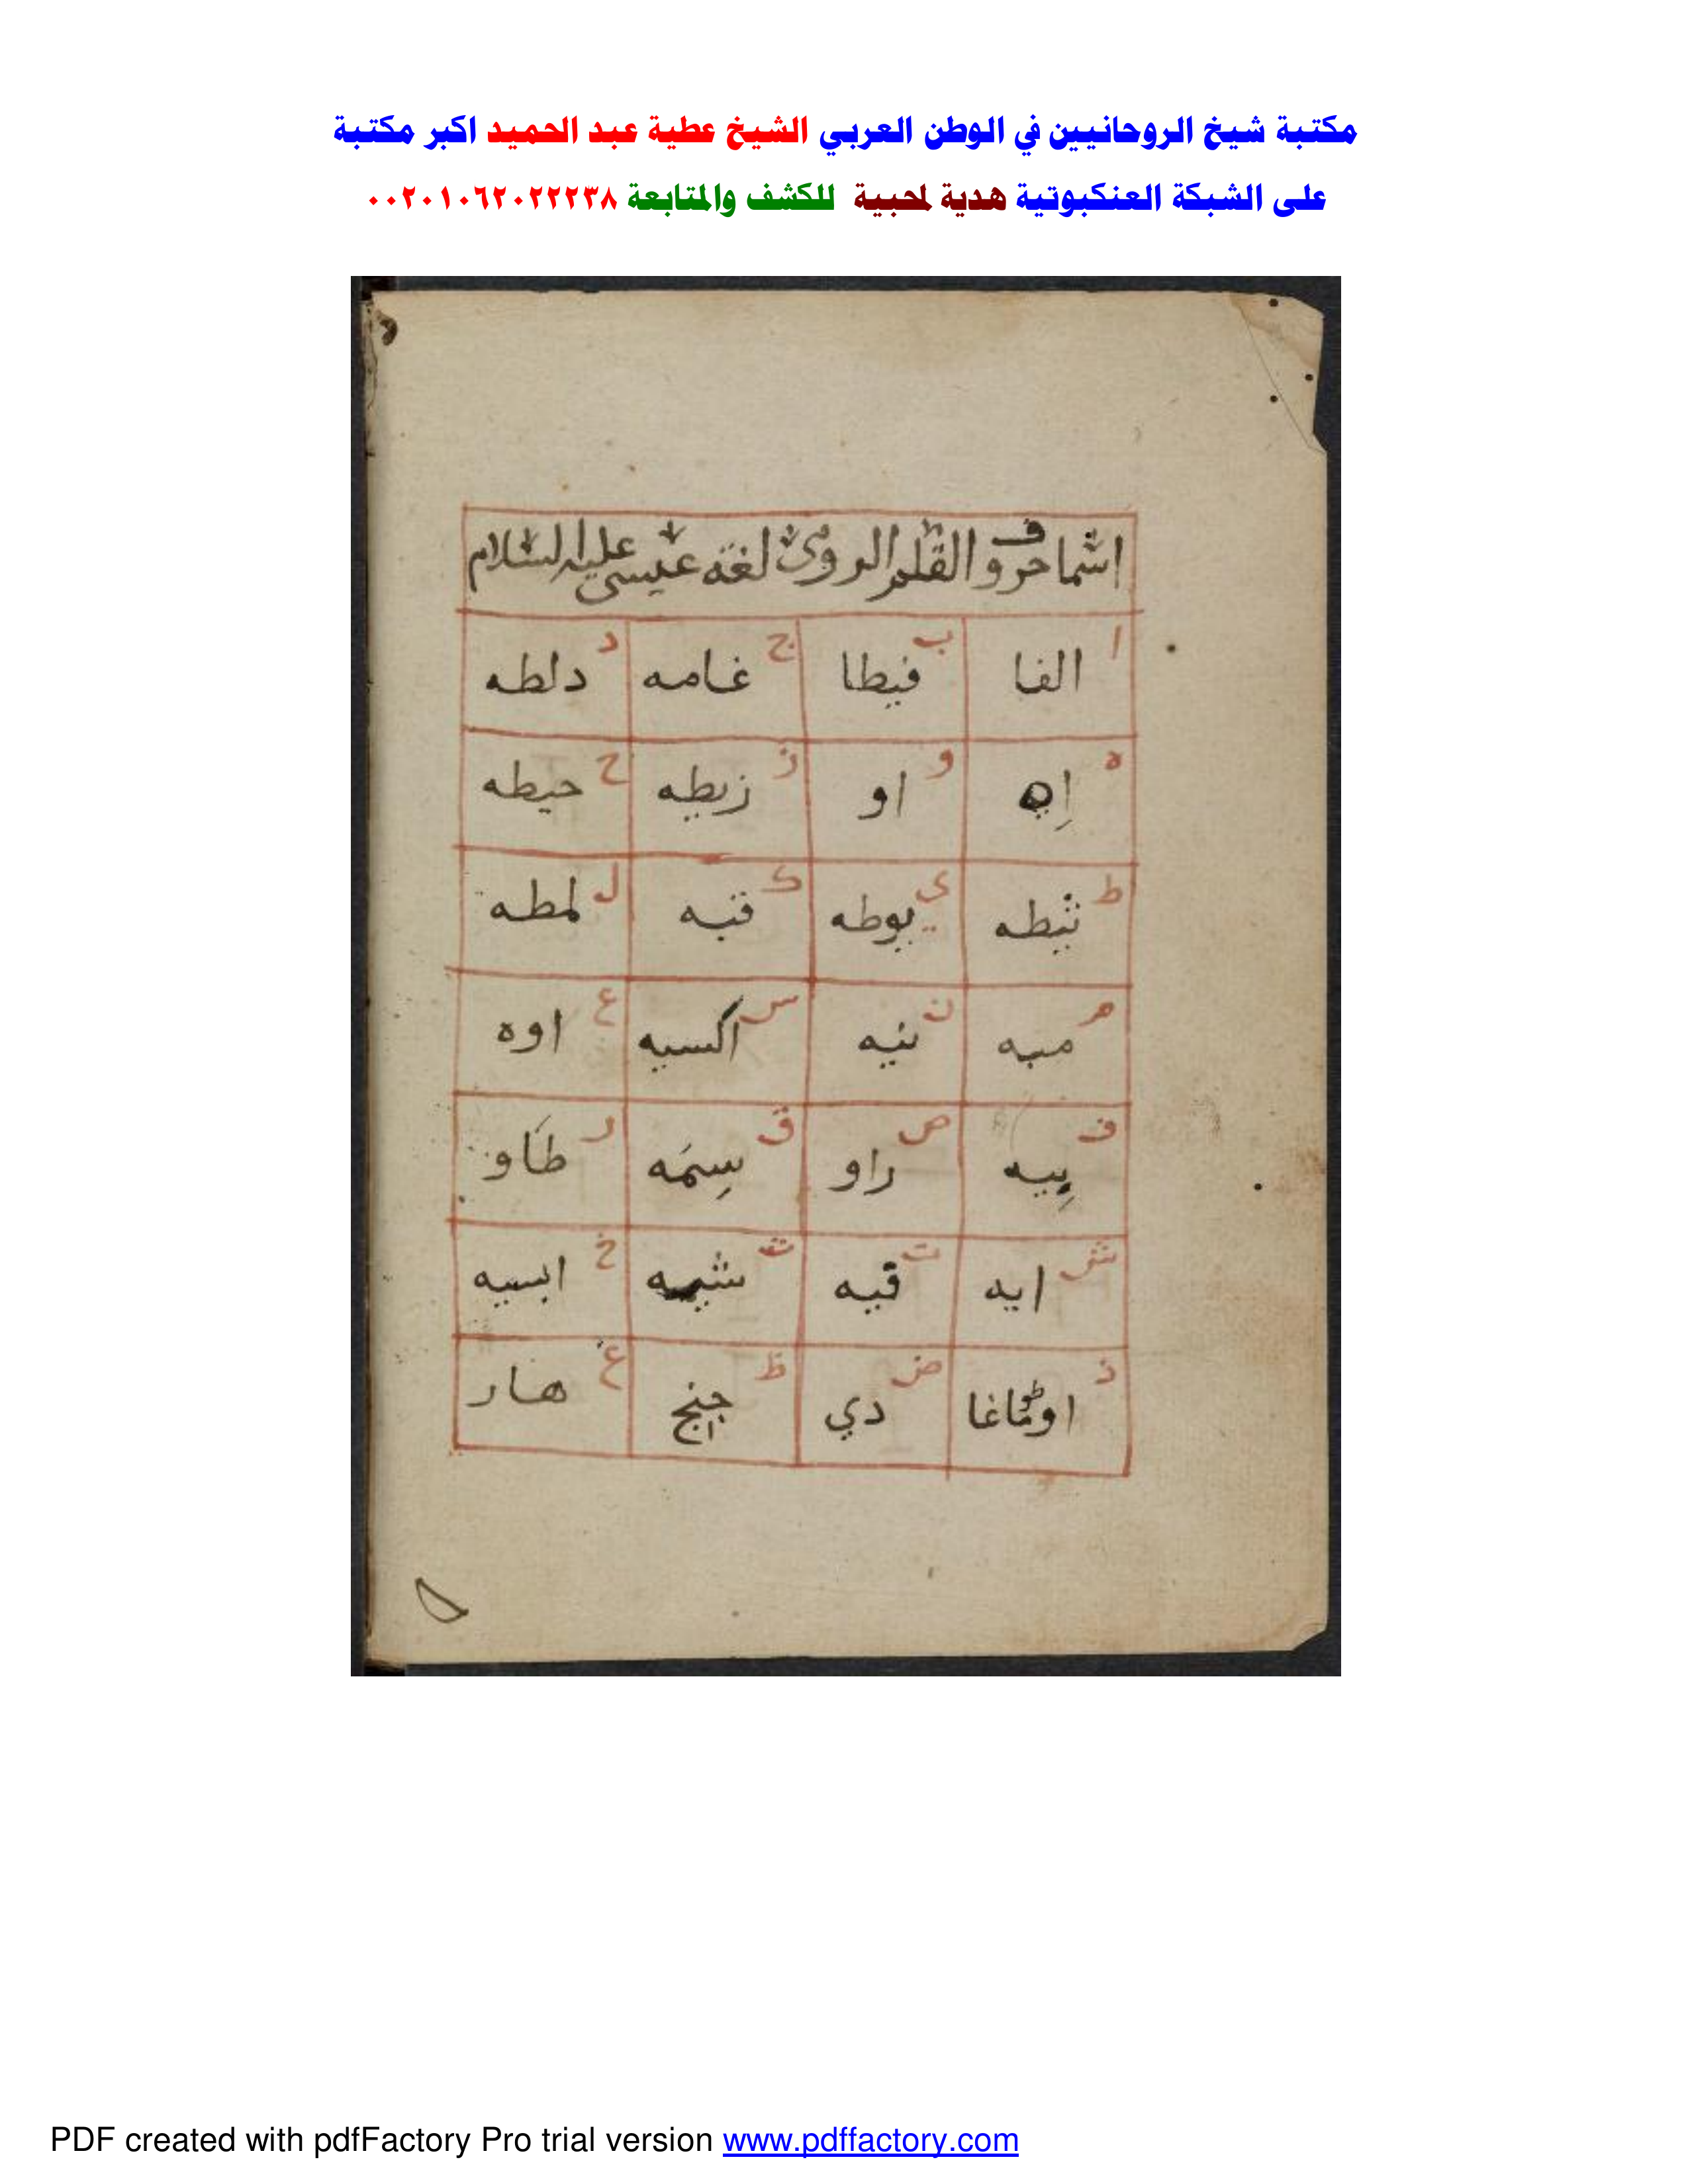 مكتبة شيخ الروحانيين في الوطن العربي الشيخ عطية عبد الحميد اكبر مكتبة
على الشبكة العنكبوتية هدية لمحبية للكشف والمتابعة ٠٠٢٠١٠٦٢٠٢٢٢٣٨
اسما حروف القلم الرومى لغة عيسى عليه السلام
ا الفا ب فيطا ج غامه د دلطه
ه اِه و او ز زيطه ح حيطه
ط ثيطه ي يوطه ك قبه ل لمطه
م ميه ن نيه س اكسيه ع اوه
ف پيه ص راو ق سِمَه ر طاو
ش ايه ت قيه ث خ ابسيه
ذ ض دي ظ غ هار
PDF created with pdfFactory Pro trial version www.pdffactory.com